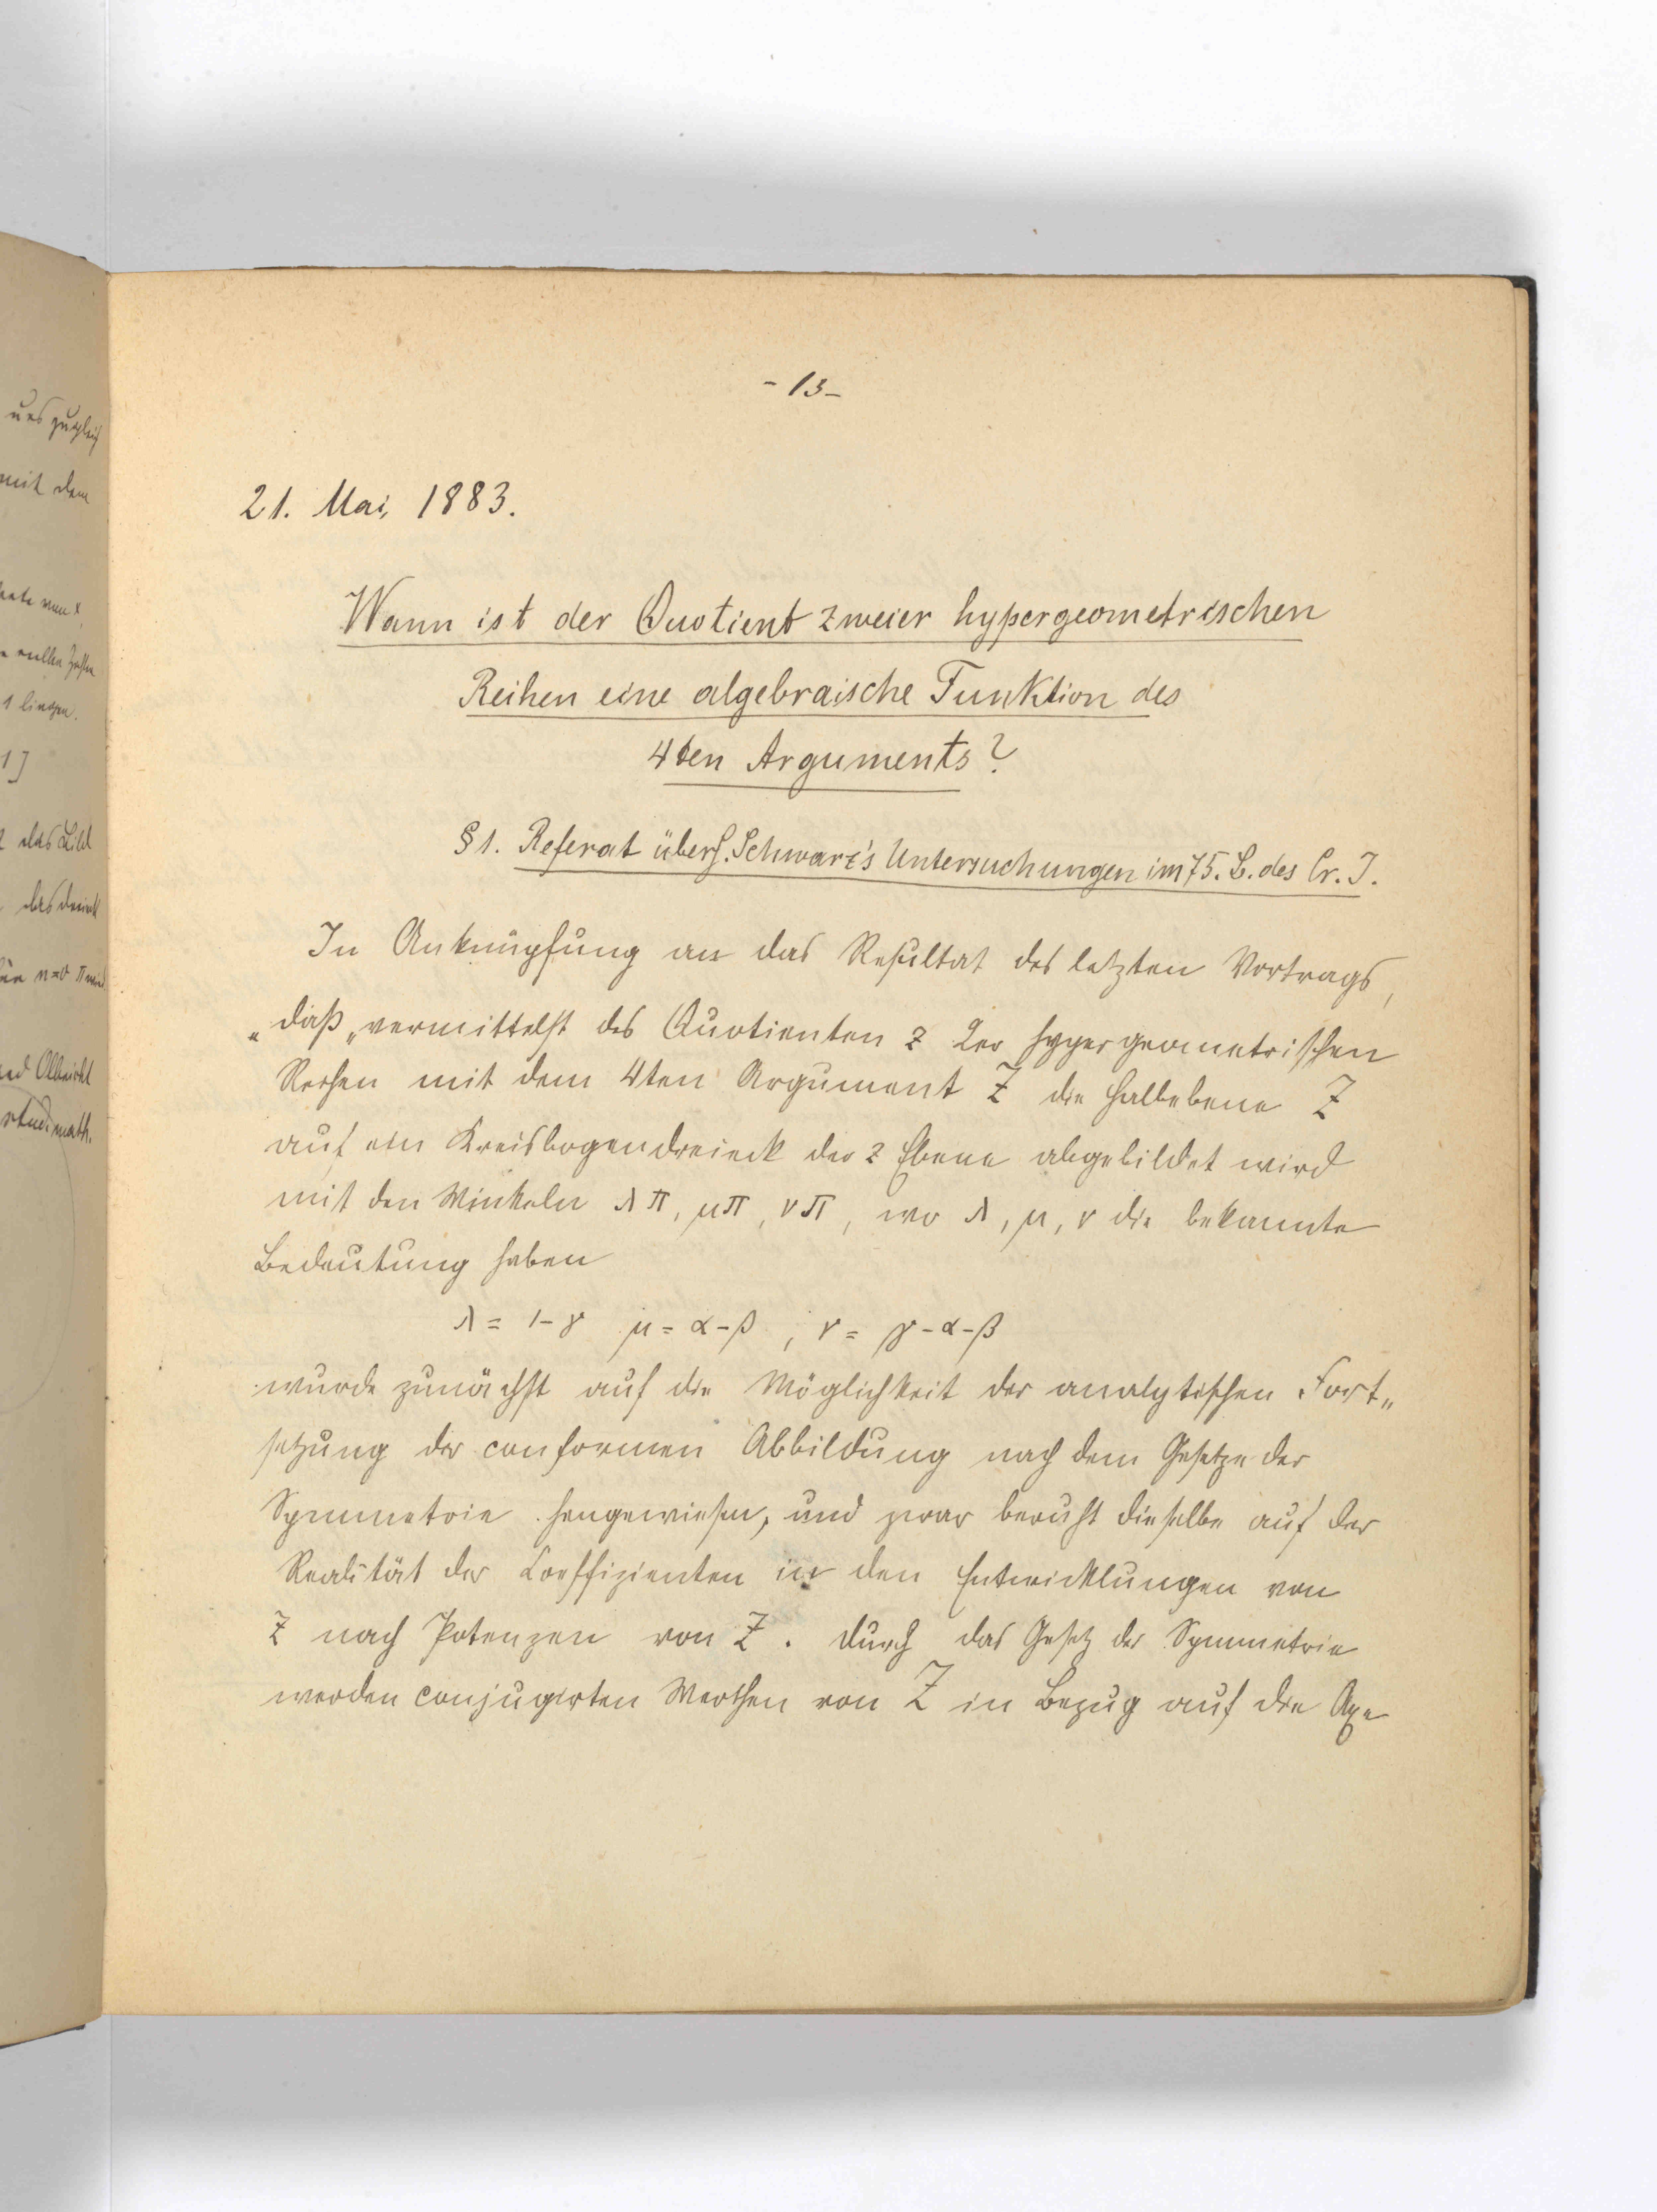 uns zugleich
mit dem
1 liegen.
1]
das Bild
das Dreieck
für n=0
Olbricht
stud. math.
- 13 -
21. Mai, 1883.
Wann ist der Quotient zweier hypergeometrischen
Reihen eine algebraische Funktion des
4ten Arguments?
§ 1. Referat über H. Schwarz's Untersuchungen im 75. B. des Cr. J.
In Anknüpfung an das Resultat des letzten Vortrags,
„daß „vermittelst des Quotienten z 2er hypergeometrischen
Reihen mit dem 4ten Argument Z die Halbebene Z
auf ein Kreisbogendreieck der z Ebene abgebildet wird
mit den Winkeln λπ, μπ, νπ, wo λ, μ, ν die bekannte
Bedeutung haben
λ = 1-γ μ = α-β , ν = γ-α-β
wurde zunächst auf die Möglichkeit der analytischen Fort„
setzung der conformen Abbildung nach dem Gesetze der
Symmetrie hingewiesen, und zwar beruht dieselbe auf der
Realität der Coeffizienten in den Entwicklungen von
z nach Potenzen von Z. Durch das Gesetz der Symmetrie
werden conjugirten Werthen von Z in Bezug auf die Axe